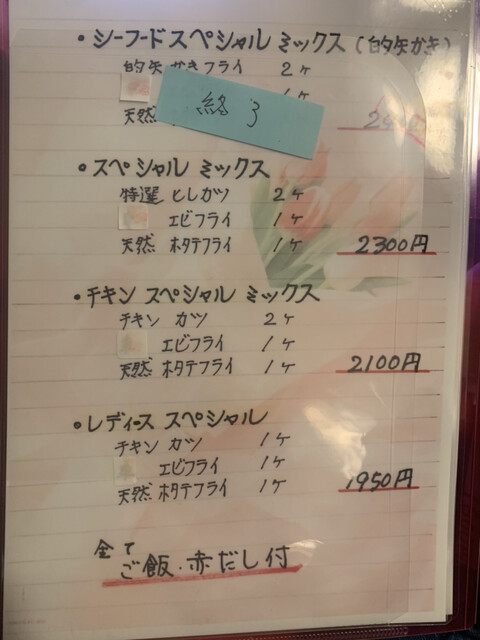 ・シーフードスペシャルミックス(的矢かき)
的矢かきフライ 2ヶ
1ヶ
天然
終了
・スペシャルミックス
特選 としカツ 2ヶ
エビフライ 1ヶ
天然 ホタテフライ 1ヶ 2300円
・チキン スペシャルミックス
チキン カツ 2ヶ
エビフライ 1ヶ
天然 ホタテフライ 1ヶ 2100円
・レディース スペシャル
チキン カツ 1ヶ
エビフライ 1ヶ
天然 ホタテフライ 1ヶ 1950円
全て
ご飯・赤だし付